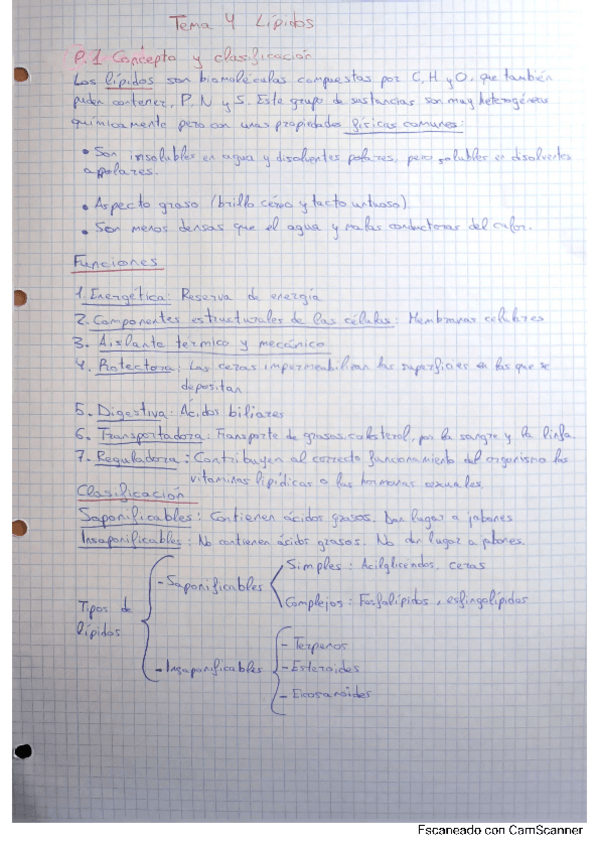 Tema 4 Lípidos
P.1 Concepto y clasificación
Los lípidos son biomoléculas compuestas por C, H y O, que también
puden contener, P, N y S. Este grupo de sustancias son muy heterogéneas
químicamente pero con unas propiedades físicas comunes:
• Son insolubles en agua y disolventes polares, pero solubles en disolventes
apolares.
• Aspecto graso (brillo céreo y tacto untuoso)
• Son menos densas que el agua y malas conductoras del calor.
Funciones
1. Energética: Reserva de energía
2. Componentes estructurales de las células: Membranas celulares
3. Aislante térmico y mecánico
4. Protectora: Las ceras impermeabilizan las superficies en las que se
depositan
5. Digestiva: Ácidos biliares
6. Transportadora: Transporte de grasas, colesterol, por la sangre y la linfa.
7. Reguladora: Contribuyen al correcto funcionamiento del organismo las
vitaminas lipídicas o las hormonas sexuales.
Clasificación
Saponificables: Contienen ácidos grasos. Dan lugar a jabones
Insaponificables: No contienen ácidos grasos. No dn lugar a jabones.
Simples: Acilglicéridos, ceras
- Saponificables
Complejos: Fosfolípidos, esfingolípidos
Tipos de
lípidos
- Terpenos
- Insaponificables - Esteroides
- Eicosanoides
Escaneado con CamScanner